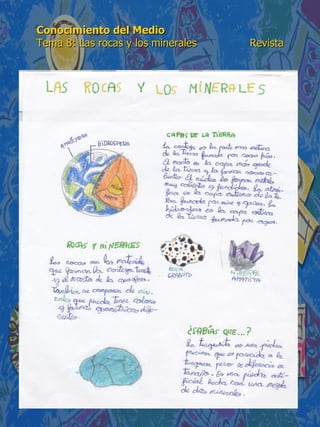 Conocimiento del Medio
Tema 8: Las rocas y los minerales Revista
LAS ROCAS Y LOS MINERALES
ATMÓSFERA
HIDROSFERA
CAPAS DE LA TIERRA
La corteza es la parte mas extena
de la Tierra formada por rocas frias.
El manto es la capa más grande
de la Tierra y la forman rocas ca-
lientes. El núcleo lo forman metales
muy calientes y fundidos. La atmós-
fera es la capa externa de la tie-
rra formada por aire y gases. La
hidrosfera es la capa externa
de la Tierra formada por agua.
ROCAS Y MINERALES
Las rocas son los materiales
que forman la corteza terrestre
y el manto de la
también se componen de mine-
rales que puede tener colores
y formas geométricas dife-
rentes.
ROCA
GRANITO
MINERAL
APATITA
¿SABÍAS QUE...?
La es una piedra
preciosa que es parecida a la
turquesa pero se diferencia en
tamaño. Es una piedra arti-
ficial hecha con una mezcla
de dos minerales.